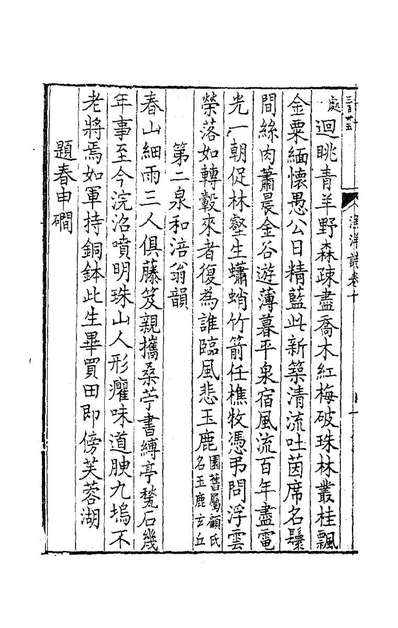 迴眺青羊野森疎盡喬木紅梅破珠林叢桂飄
金粟緬懷愚公日精藍此新築清流吐茵席名鬟
間絲肉蕭晨金谷遊薄暮平泉宿風流百年盡電
光一朝促林壑生蠨蛸竹箭任樵牧憑弔問浮雲
榮落如轉轂來者復為誰臨風悲玉鹿園舊屬顧氏名玉鹿玄丘
第二泉和涪翁韻
春山細雨三人俱藤笈親攜桑苧書縛亭甃石幾
年事至今沇沿噴明珠山人形癯味道腴九塢不
老將焉如軍持銅鉢此生畢買田即傍芙蓉湖
題春申磵